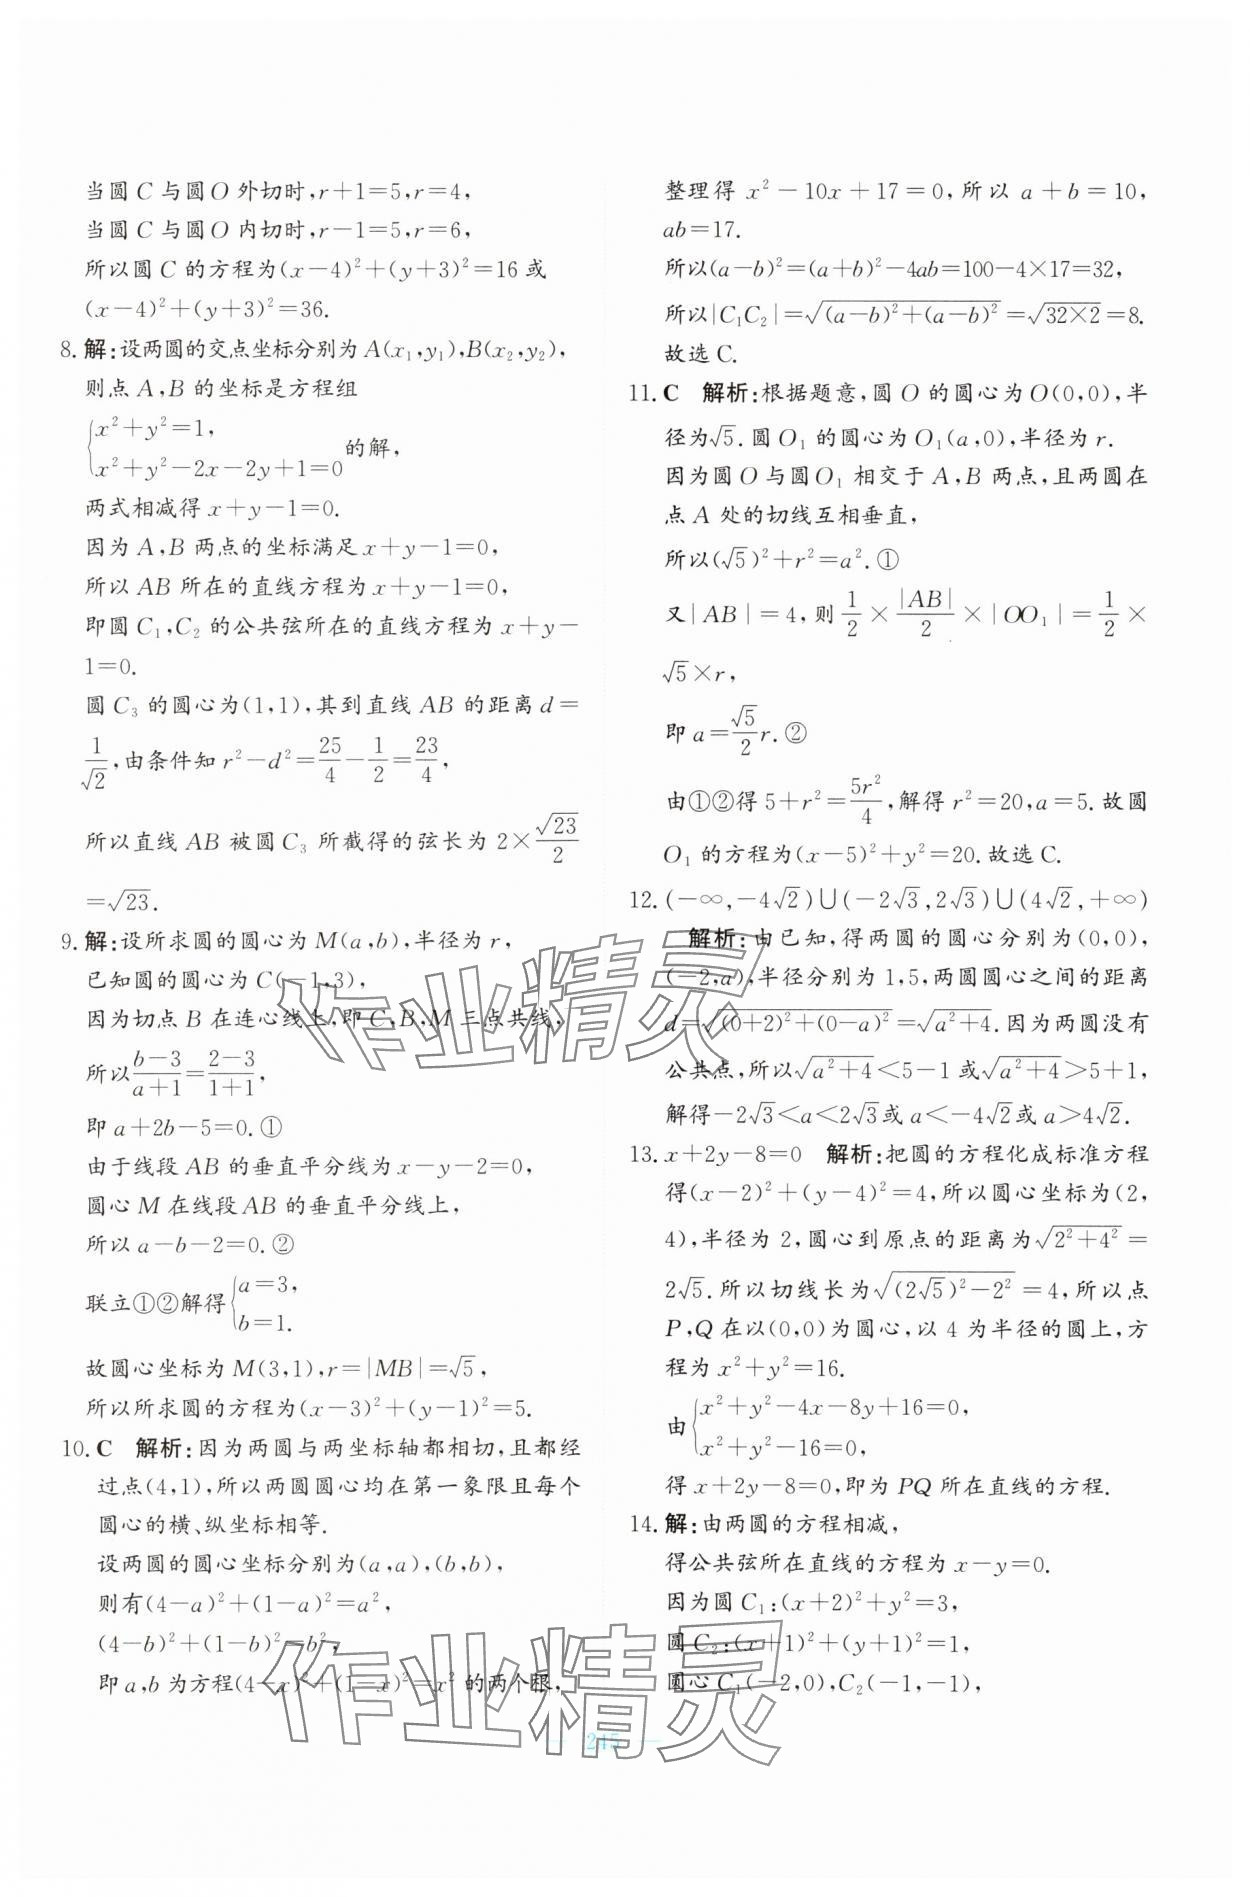 当圆 C 与圆 O 外切时,r+1=5,r=4,
当圆 C 与圆 O 内切时,r-1=5,r=6,
所以圆 C 的方程为(x-4)²+(y+3)²=16 或
(x-4)²+(y+3)²=36.
8. 解:设两圆的交点坐标分别为 A(x₁,y₁),B(x₂,y₂),
则点 A,B 的坐标是方程组
{x²+y²=1,
x²+y²-2x-2y+1=0 的解,
两式相减得 x+y-1=0.
因为 A,B 两点的坐标满足 x+y-1=0,
所以 AB 所在的直线方程为 x+y-1=0,
即圆 C₁,C₂ 的公共弦所在的直线方程为 x+y-
1=0.
圆 C₃ 的圆心为(1,1),其到直线 AB 的距离 d=
1/√2,由条件知 r²-d²=25/4-1/2=23/4,
所以直线 AB 被圆 C₃ 所截得的弦长为 2×√23/2
=√23.
9. 解:设所求圆的圆心为 M(a,b),半径为 r,
已知圆的圆心为 C(-1,3),
因为切点 B 在连心线上,即 C,B,M 三点共线,
所以(b-3)/(a+1)=(2-3)/(1+1),
即 a+2b-5=0.①
由于线段 AB 的垂直平分线为 x-y-2=0,
圆心 M 在线段 AB 的垂直平分线上,
所以 a-b-2=0.②
联立①②解得{a=3,
b=1.
故圆心坐标为 M(3,1),r=|MB|=√5,
所以所求圆的方程为(x-3)²+(y-1)²=5.
10. C 解析:因为两圆与两坐标轴都相切,且都经
过点(4,1),所以两圆圆心均在第一象限且每个
圆心的横、纵坐标相等.
设两圆的圆心坐标分别为(a,a),(b,b),
则有(4-a)²+(1-a)²=a²,
(4-b)²+(1-b)²=b²,
即 a,b 为方程(4-x)²+(1-x)²=x² 的两个根,
整理得 x²-10x+17=0,所以 a+b=10,
ab=17.
所以(a-b)²=(a+b)²-4ab=100-4×17=32,
所以|C₁C₂|=√((a-b)²+(a-b)²)=√(32×2)=8.
故选 C.
11. C 解析:根据题意,圆 O 的圆心为 O(0,0),半
径为√5.圆 O₁ 的圆心为 O₁(a,0),半径为 r.
因为圆 O 与圆 O₁ 相交于 A,B 两点,且两圆在
点 A 处的切线互相垂直,
所以(√5)²+r²=a².①
又|AB|=4,则 1/2×|AB|/2×|OO₁|=1/2×
√5×r,
即 a=√5/2 r.②
由①②得 5+r²=5r²/4,解得 r²=20,a=5.故圆
O₁ 的方程为(x-5)²+y²=20.故选 C.
12. (-∞,-4√2)∪(-2√3,2√3)∪(4√2,+∞)
解析:由已知,得两圆的圆心分别为(0,0),
(-2,a),半径分别为 1,5,两圆圆心之间的距离
d=√((0+2)²+(0-a)²)=√(a²+4).因为两圆没有
公共点,所以√(a²+4)<5-1 或√(a²+4)>5+1,
解得-2√3<a<2√3或 a<-4√2或 a>4√2.
13. x+2y-8=0 解析:把圆的方程化成标准方程
得(x-2)²+(y-4)²=4,所以圆心坐标为(2,
4),半径为 2,圆心到原点的距离为√(2²+4²)=
2√5.所以切线长为√((2√5)²-2²)=4,所以点
P,Q 在以(0,0)为圆心,以 4 为半径的圆上,方
程为 x²+y²=16.
由{x²+y²-4x-8y+16=0,
x²+y²-16=0,
得 x+2y-8=0,即为 PQ 所在直线的方程.
14. 解:由两圆的方程相减,
得公共弦所在直线的方程为 x-y=0.
因为圆 C₁:(x+2)²+y²=3,
圆 C₂:(x+1)²+(y+1)²=1,
圆心 C₁(-2,0),C₂(-1,-1),
245
作业精灵
作业精灵